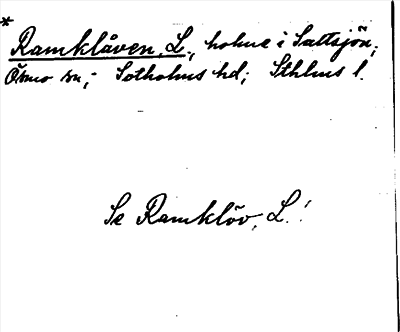 *
Ramklåven, L., holme i Saltsjön;
Ösmo sn; Sotholms hd; Sthlms l.
Se Ramklöv, L.!